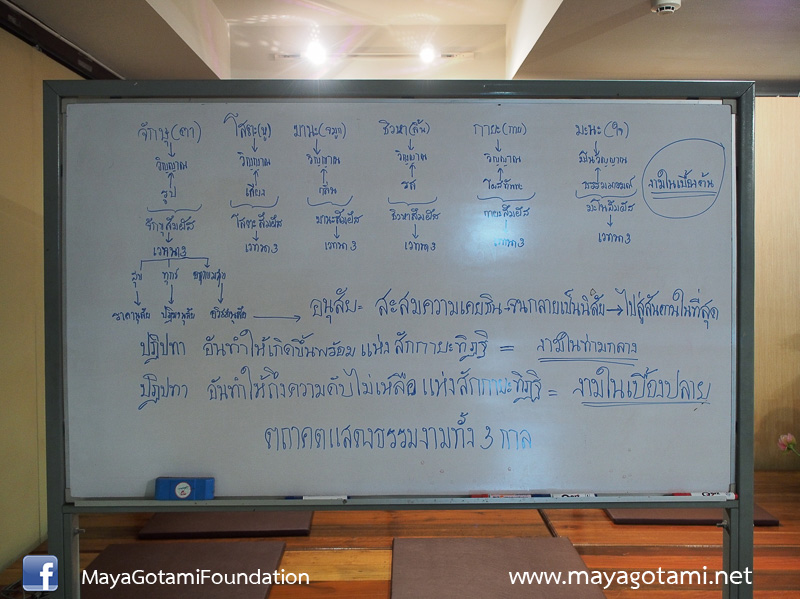 จักษุ(ตา) โสตะ(หู) ฆานะ(จมูก) ชิวหา(ลิ้น) กายะ(กาย) มะนะ(ใจ)
วิญญาณ วิญญาณ วิญญาณ วิญญาณ วิญญาณ มโนวิญญาณ
รูป เสียง กลิ่น รส โผฏฐัพพะ ธรรมารมณ์
งามในเบื้องต้น
จักษุสัมผัส โสตะสัมผัส ฆานะสัมผัส ชิวหาสัมผัส กายสัมผัส มะโนสัมผัส
เวทนา3 เวทนา3 เวทนา3 เวทนา3 เวทนา3 เวทนา3
สุข ทุกข์ อทุกขมสุข
ราคานุสัย ปฏิฆานุสัย อวิชชานุสัย → อนุสัย= สะสมความเคยชิน-จนกลายเป็นนิสัย → ไปสู่สันดานในที่สุด
ปฏิปทา อันทำให้เกิดขึ้นพร้อม แห่งสักกายะทิฏฐิ = งามในท่ามกลาง
ปฏิปทา อันทำให้ถึงความดับไม่เหลือ แห่งสักกายะทิฏฐิ = งามในเบื้องปลาย
ตถาคตแสดงธรรมงามทั้ง 3 กาล
f MayaGotamiFoundation www.mayagotami.net